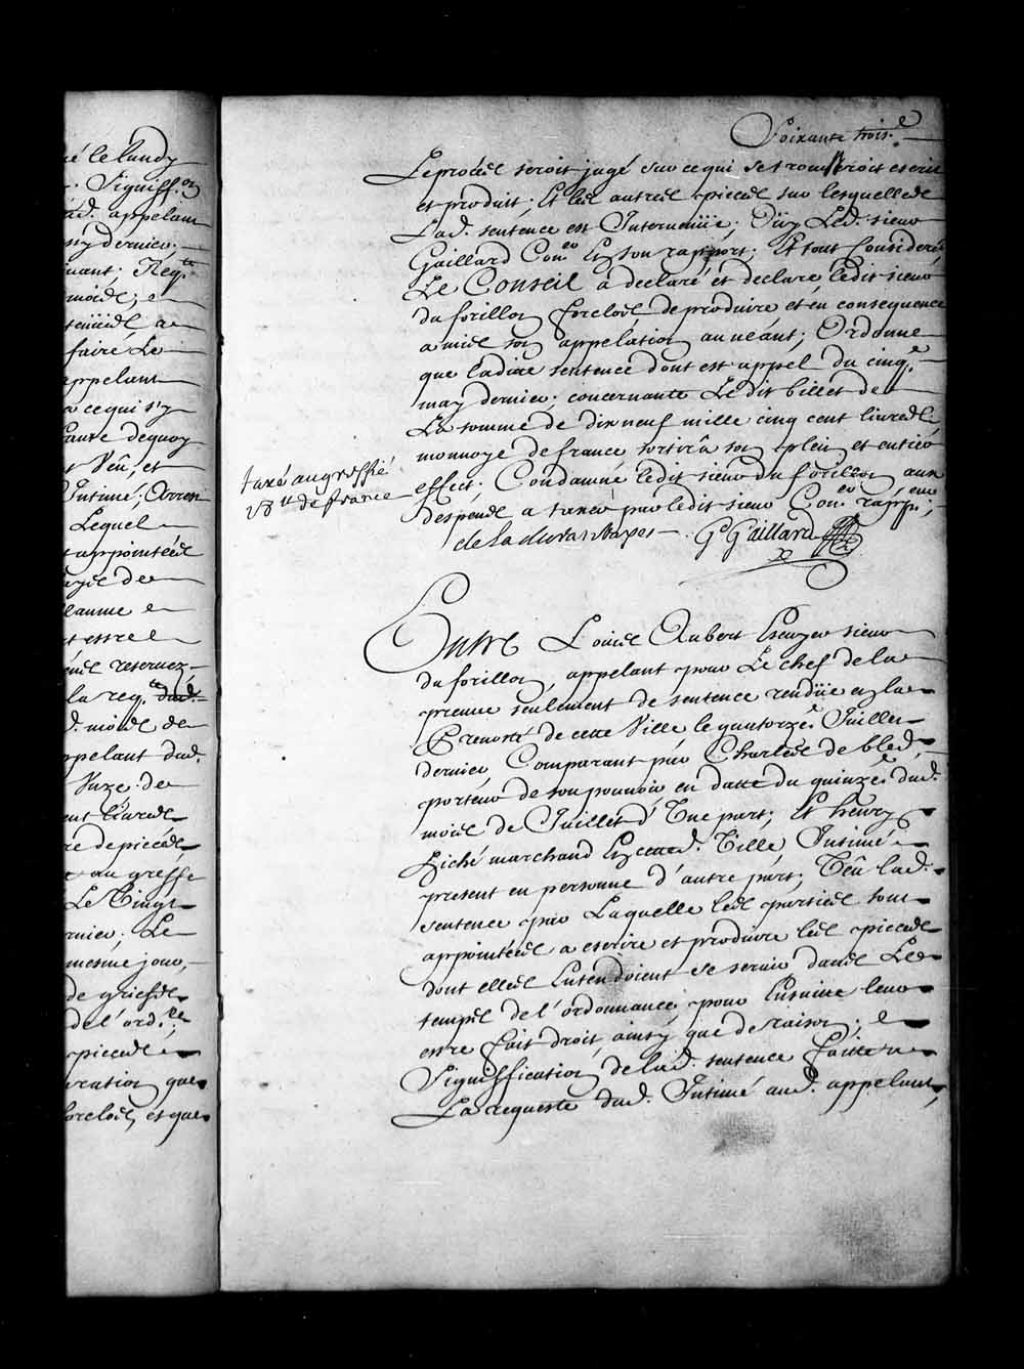 é le lundy
Signiff.on
ad. appelant
ay dernier;
vant; Req.te
mois;
faire Le
appelant
a ce qui s'y
faute dequoy
t Veu, et
Intimé; Arrest
Lequel
appointées
eaume
t estre
reservez
la req.te dud.
d. mois de
ppelant dud.
Onze de
ent livres
re de pieces
au greffe
Le Vingt
rnier; Le
mesme jour,
de griefs
de l'ord.ce;
pieces
ration que
forclos, et que
Soixante trois.e
Le procés seroit jugé sur ce qui se trouveroit escrit
et produit; Et les autres pieces sur lesquelles
Lad. sentence est Intervenüe; Oüy Led. sieur
Gaillard Con.er En son rapport; Et tout Consideré
Le Conseil a declaré et declare ledit sieur
du forillon forclos de produire et en consequence
a mis son appelation au neant; Ordonne
que ladite sentence dont est appel du cinq.e
may dernier; concernante Le dit billet de
La somme de dix neuf mille cinq cent livres
monnoye de france sortira son plein et entier
effect; Condamne ledit sieur du forillon aux
despens a taxer par ledit sieur Con.er rapp.eur;
taxé au greffe
28 lt de france
G Gaillard
Entre Louis Aubert Escuyer sieur
du forillon, appelant pour Le chef de la
preuve seulement de sentence rendüe en la
Prevosté de cette Ville le quatorze.e Juillet
dernier Comparant par Charles de bled.
porteur de son pouvoir en datte du quinze.e dud.
mois de Juillet d'Une part; Et henry
hiché marchand En cetted. Ville Intimé
present en personne d'autre part; Veu lad.
sentence par Laquelle les parties sont
appointées a escrire et produire les pieces
dont elles Entendoient se servir dans Le
temps de l'ordonnance; pour Ensuitte leur
estre fait droit, ainsy que de raison;
Signiffication de lad. sentence faitte
La requeste dud. Intimé aud. appelant,